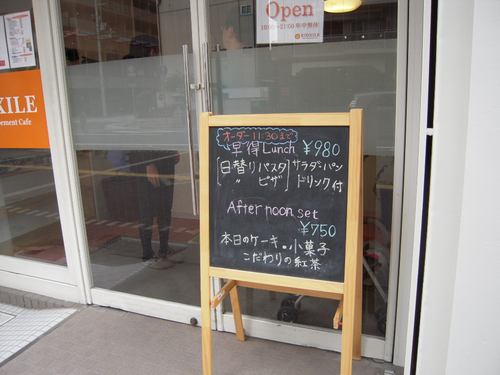 Open
10:00~21:00 年中無休
XILE
ement Cafe
オーダー11:30まで
早得Lunch ¥980
[日替りパスタ サラダ・パン
〃 ピザ] ドリンク付
Afternoon set
¥750
本日のケーキ。小菓子
こだわりの紅茶